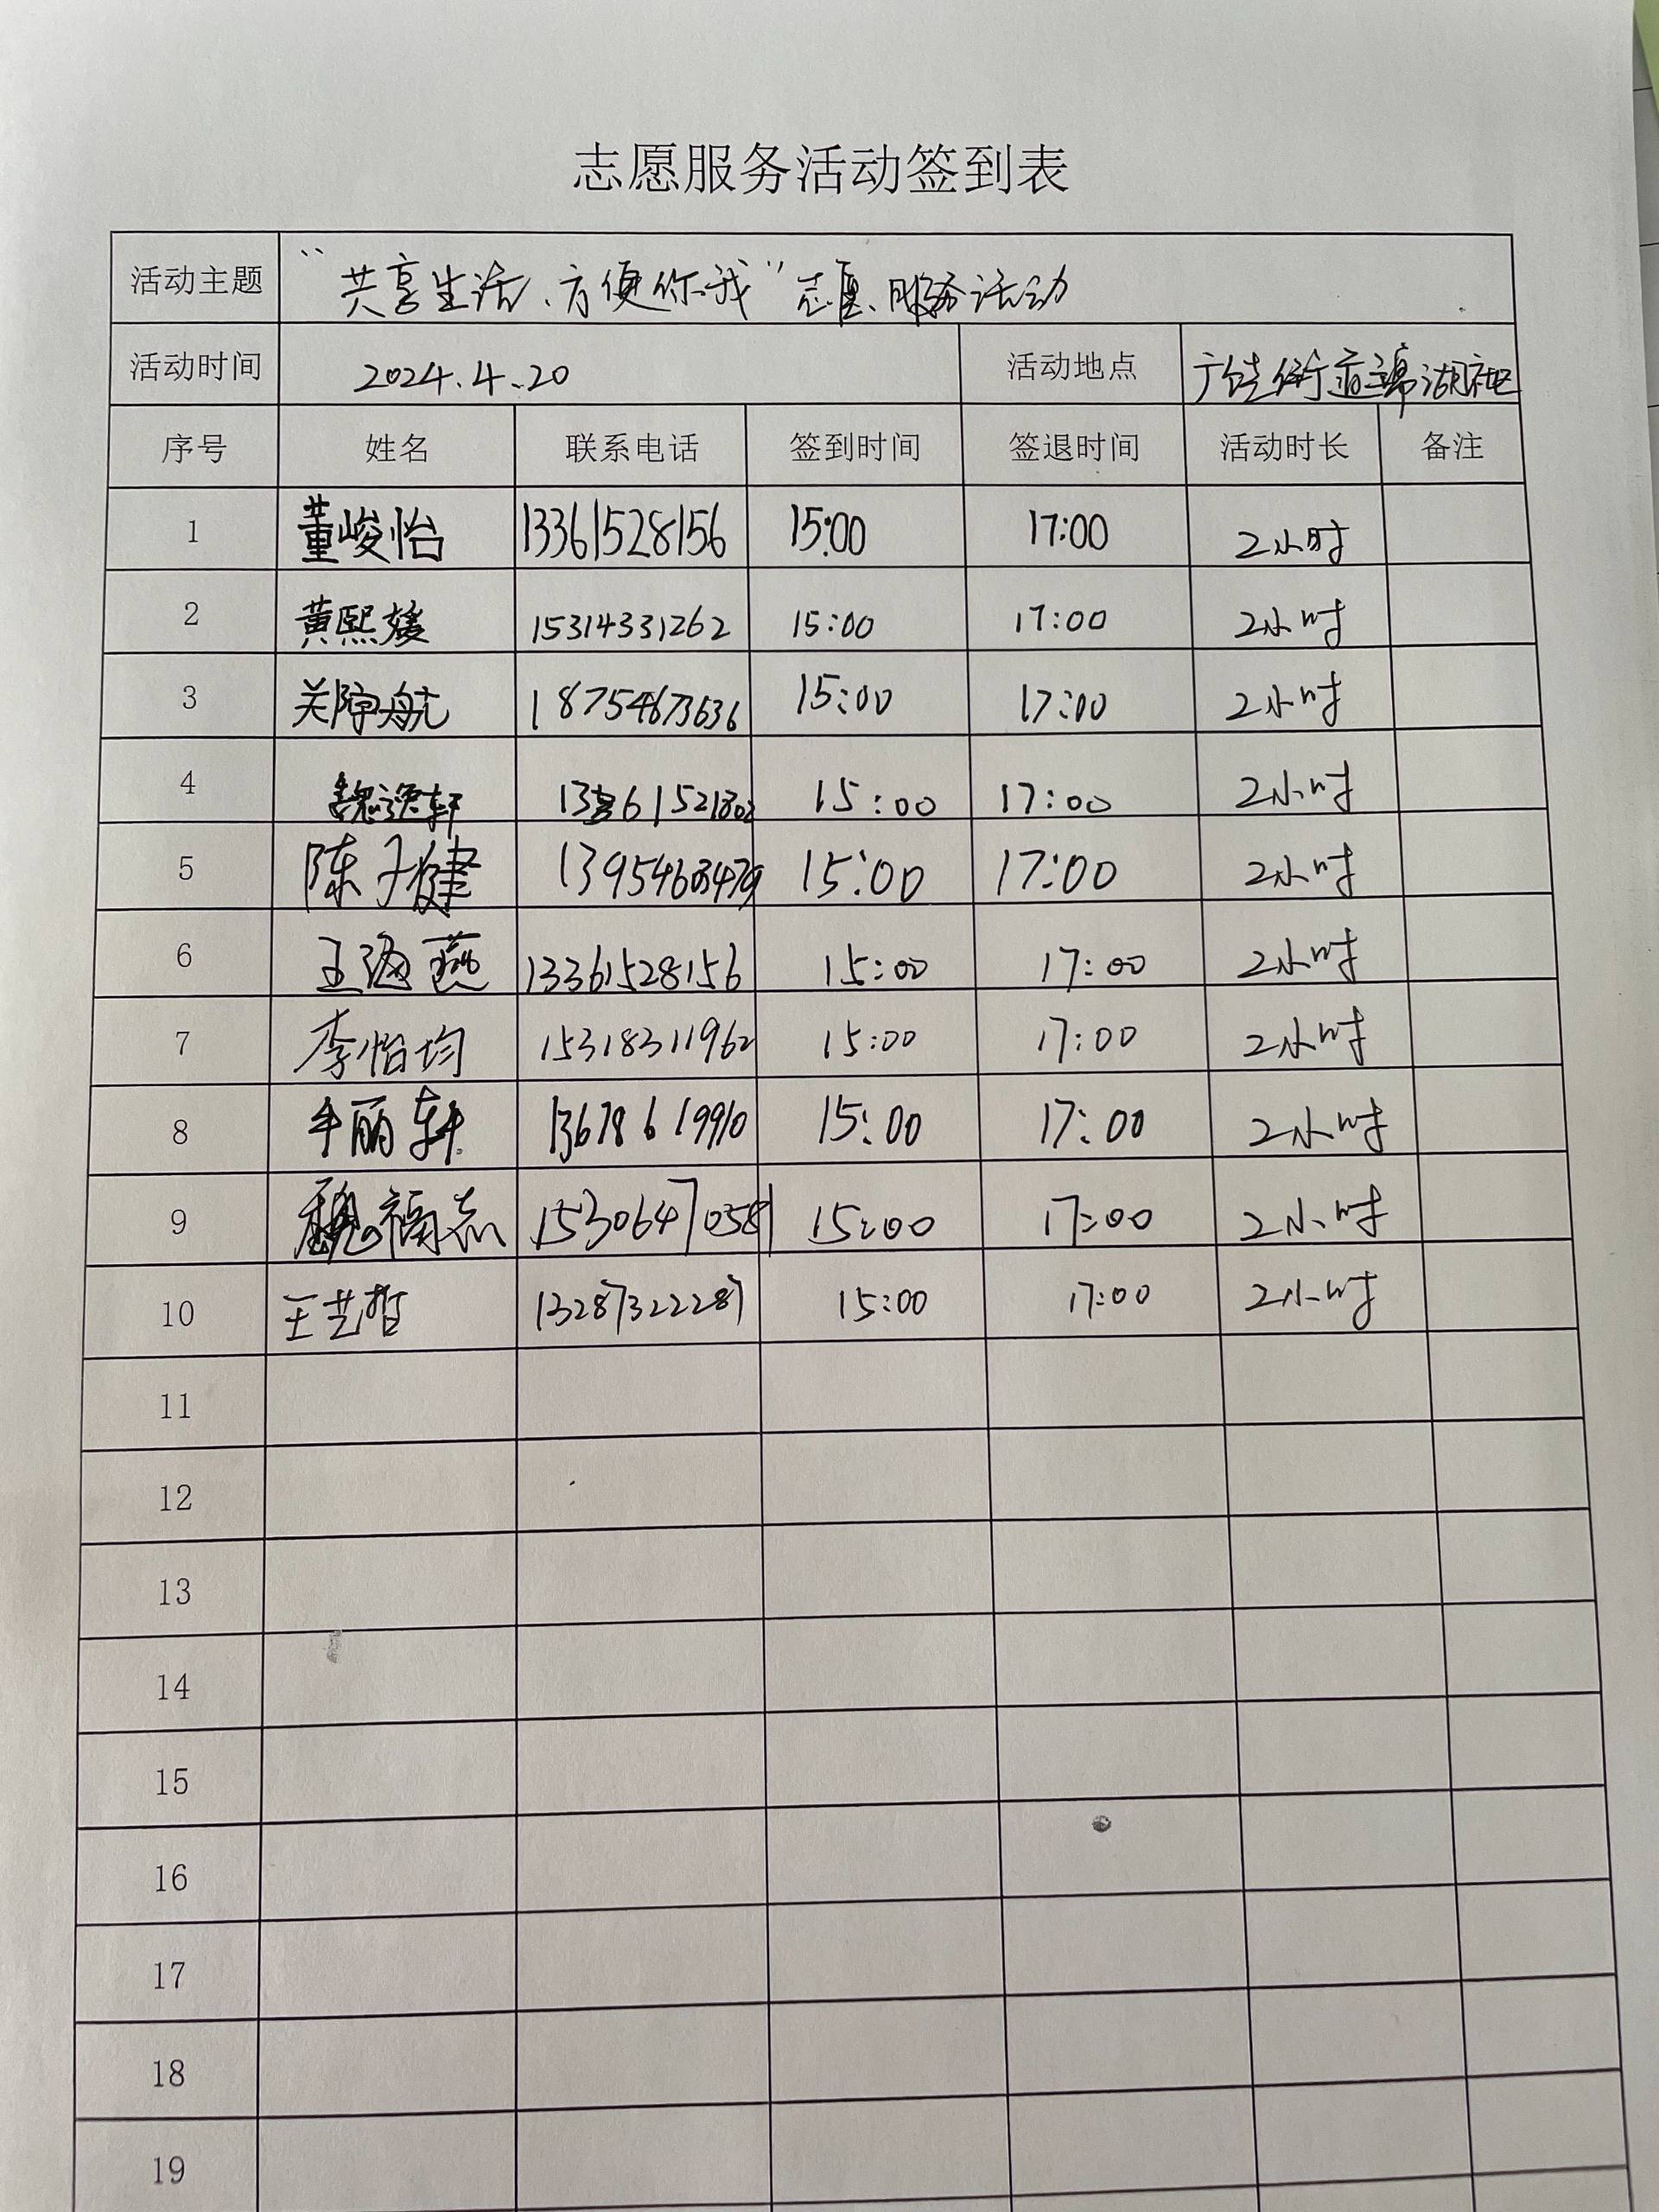 志愿服务活动签到表
活动主题 “共享生活、方便你我”志愿服务活动
活动时间 2024.4.20 活动地点 广饶街道锦湖社区
序号 姓名 联系电话 签到时间 签退时间 活动时长 备注
1 董峻怡 13361528156 15:00 17:00 2小时
2 黄熙媛 15314331262 15:00 17:00 2小时
3 关航 18754673636 15:00 17:00 2小时
4 魏逸轩 15:00 17:00 2小时
5 陈子健 15:00 17:00 2小时
6 王海燕 13361528156 15:00 17:00 2小时
7 李怡均 15318311962 15:00 17:00 2小时
8 丽轩 13678619910 15:00 17:00 2小时
9 魏福志 15306470581 15:00 17:00 2小时
10 王艺哲 13287322287 15:00 17:00 2小时
11
12
13
14
15
16
17
18
19